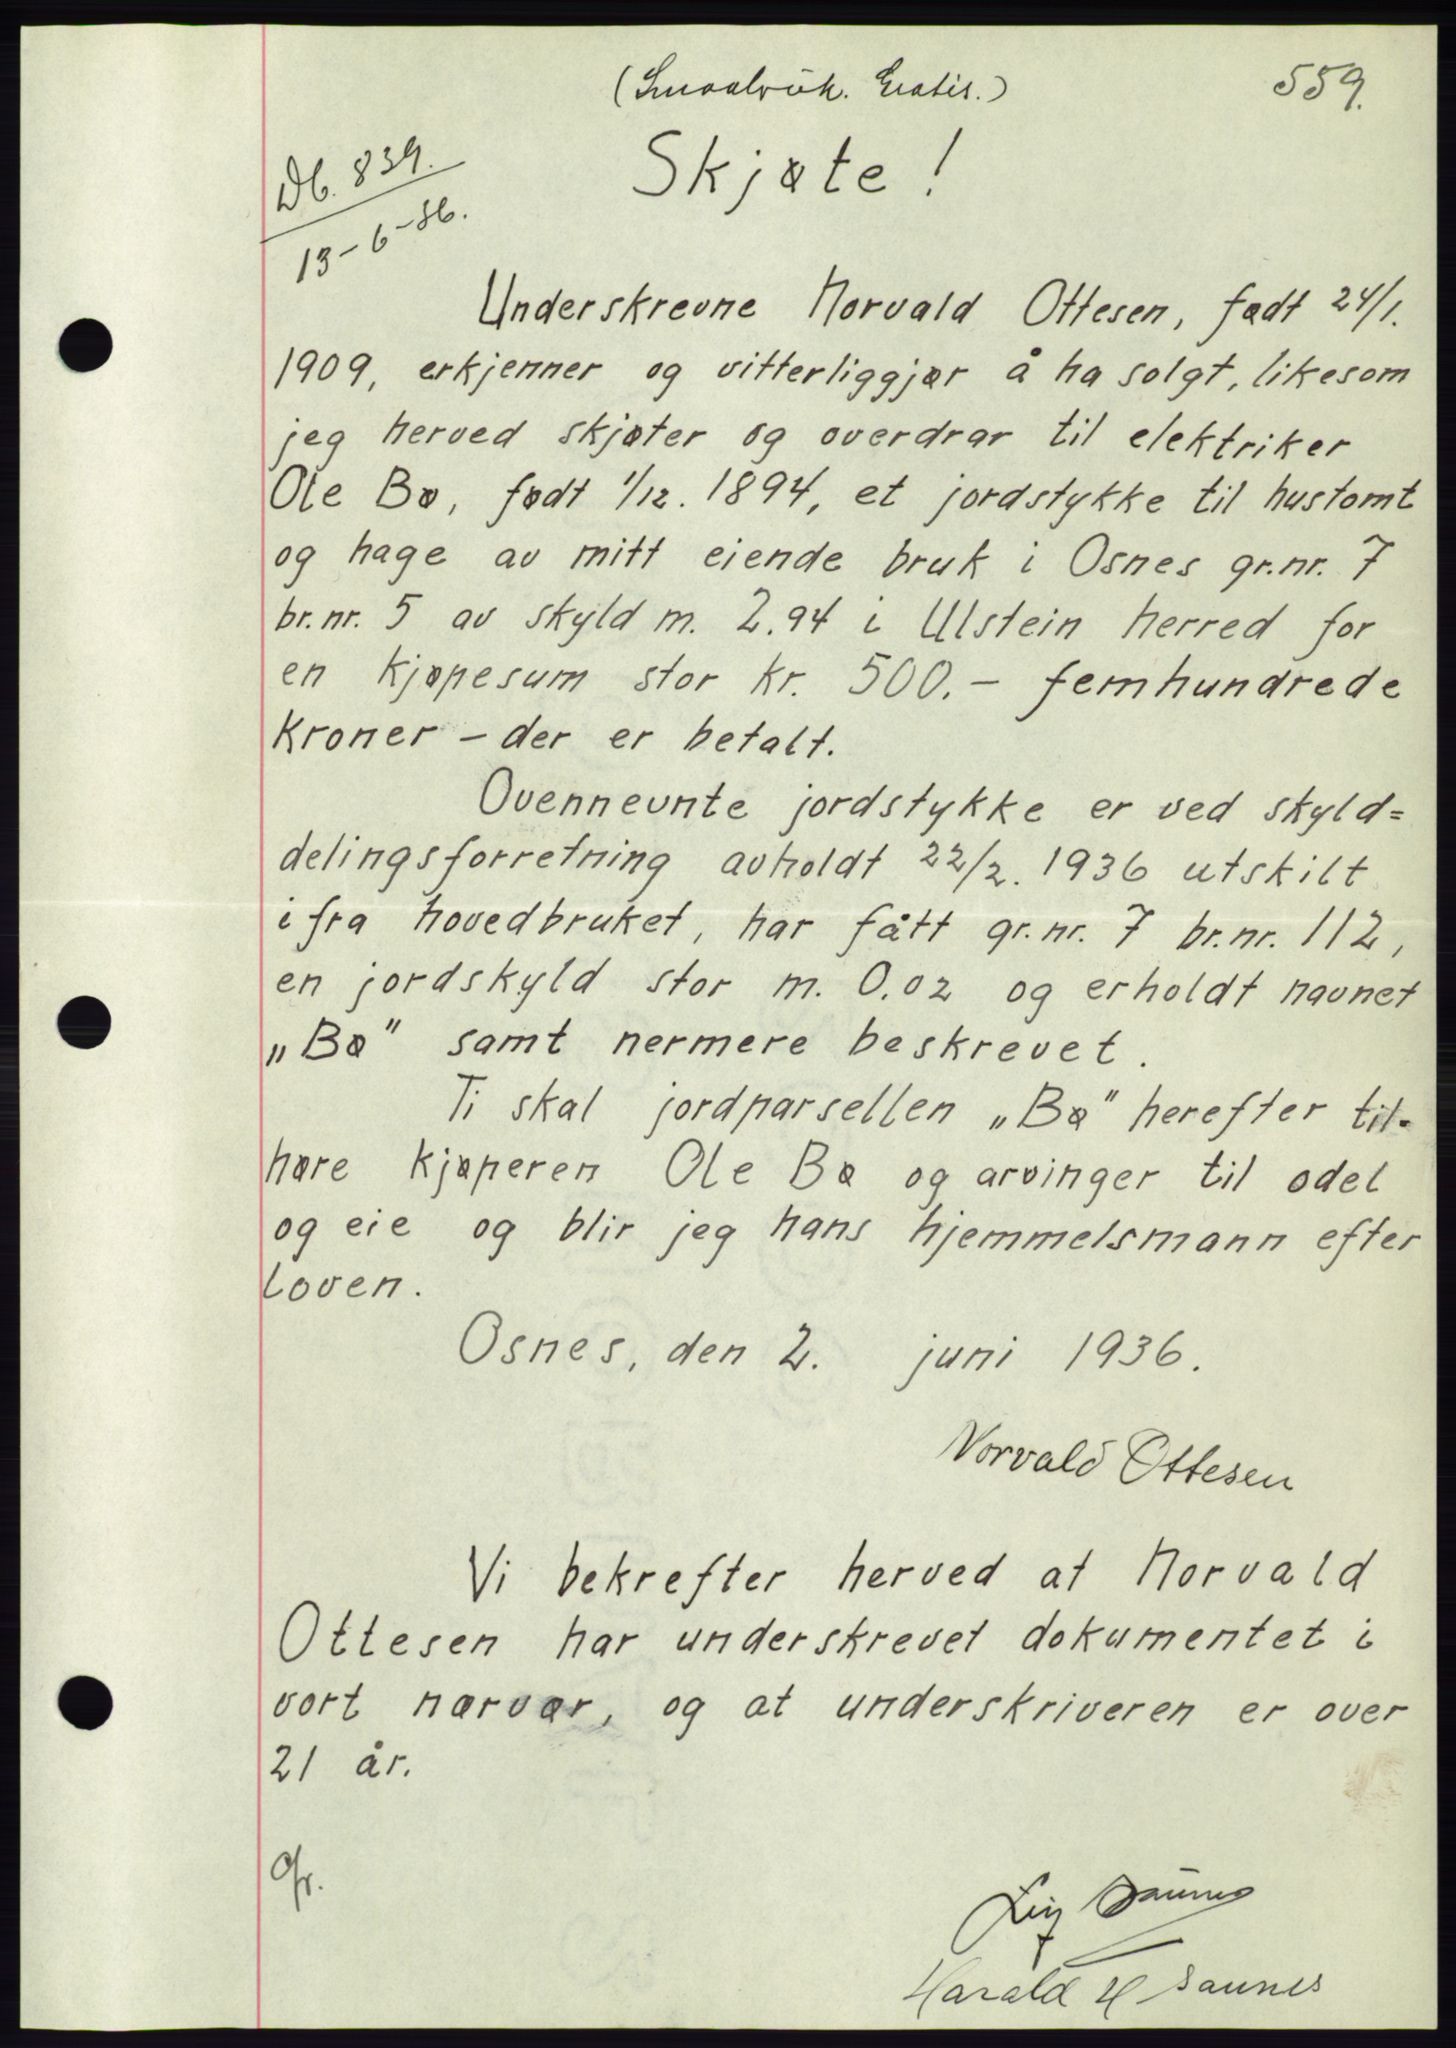 (Smaabruk. Gratis.)
559.
Db. 839.
13-6-36.
Skjøte!
Underskrevne Norvald Ottesen, født 24/1.
1909, erkjenner og vitterliggjør å ha solgt, likesom
jeg herved skjøter og overdrar til elektriker
Ole Bø, født 1/12. 1894, et jordstykke til hustomt
og hage av mitt eiende bruk i Osnes gr.nr. 7
br.nr. 5 av skyld m. 2.94 i Ulstein herred for
en kjøpesum stor kr. 500.- femhundrede
kroner - der er betalt.
Ovennevnte jordstykke er ved skyld=
delingsforretning avholdt 22/2. 1936 utskilt
ifra hovedbruket, har fått gr.nr. 7 br.nr. 112,
en jordskyld stor m. 0.02 og erholdt navnet
„Bø" samt nermere beskrevet.
Ti skal jordparsellen „Bø" herefter til-
høre kjøperen Ole Bø og arvinger til odel
og eie og blir jeg hans hjemmelsmann efter
loven.
Osnes, den 2. juni 1936.
Norvald Ottesen
Vi bekrefter herved at Norvald
Ottesen har underskrevet dokumentet i
vort nærvær, og at underskriveren er over
21 år.
Harald H Saunes